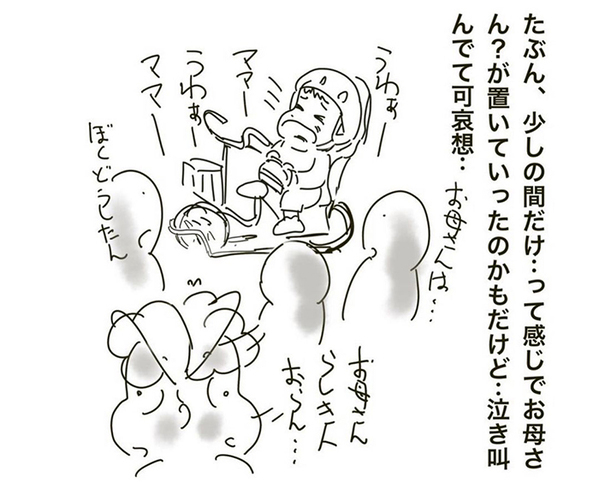 たぶん、少しの間だけ‥って感じでお母さ
ん？が置いていったのかもだけど‥泣き叫
んでて可哀想‥
うわぁー
ママー
うわぁー
ママー
お母さんは…
ぼくどうしたん
お母さん
らしき人
おらん…